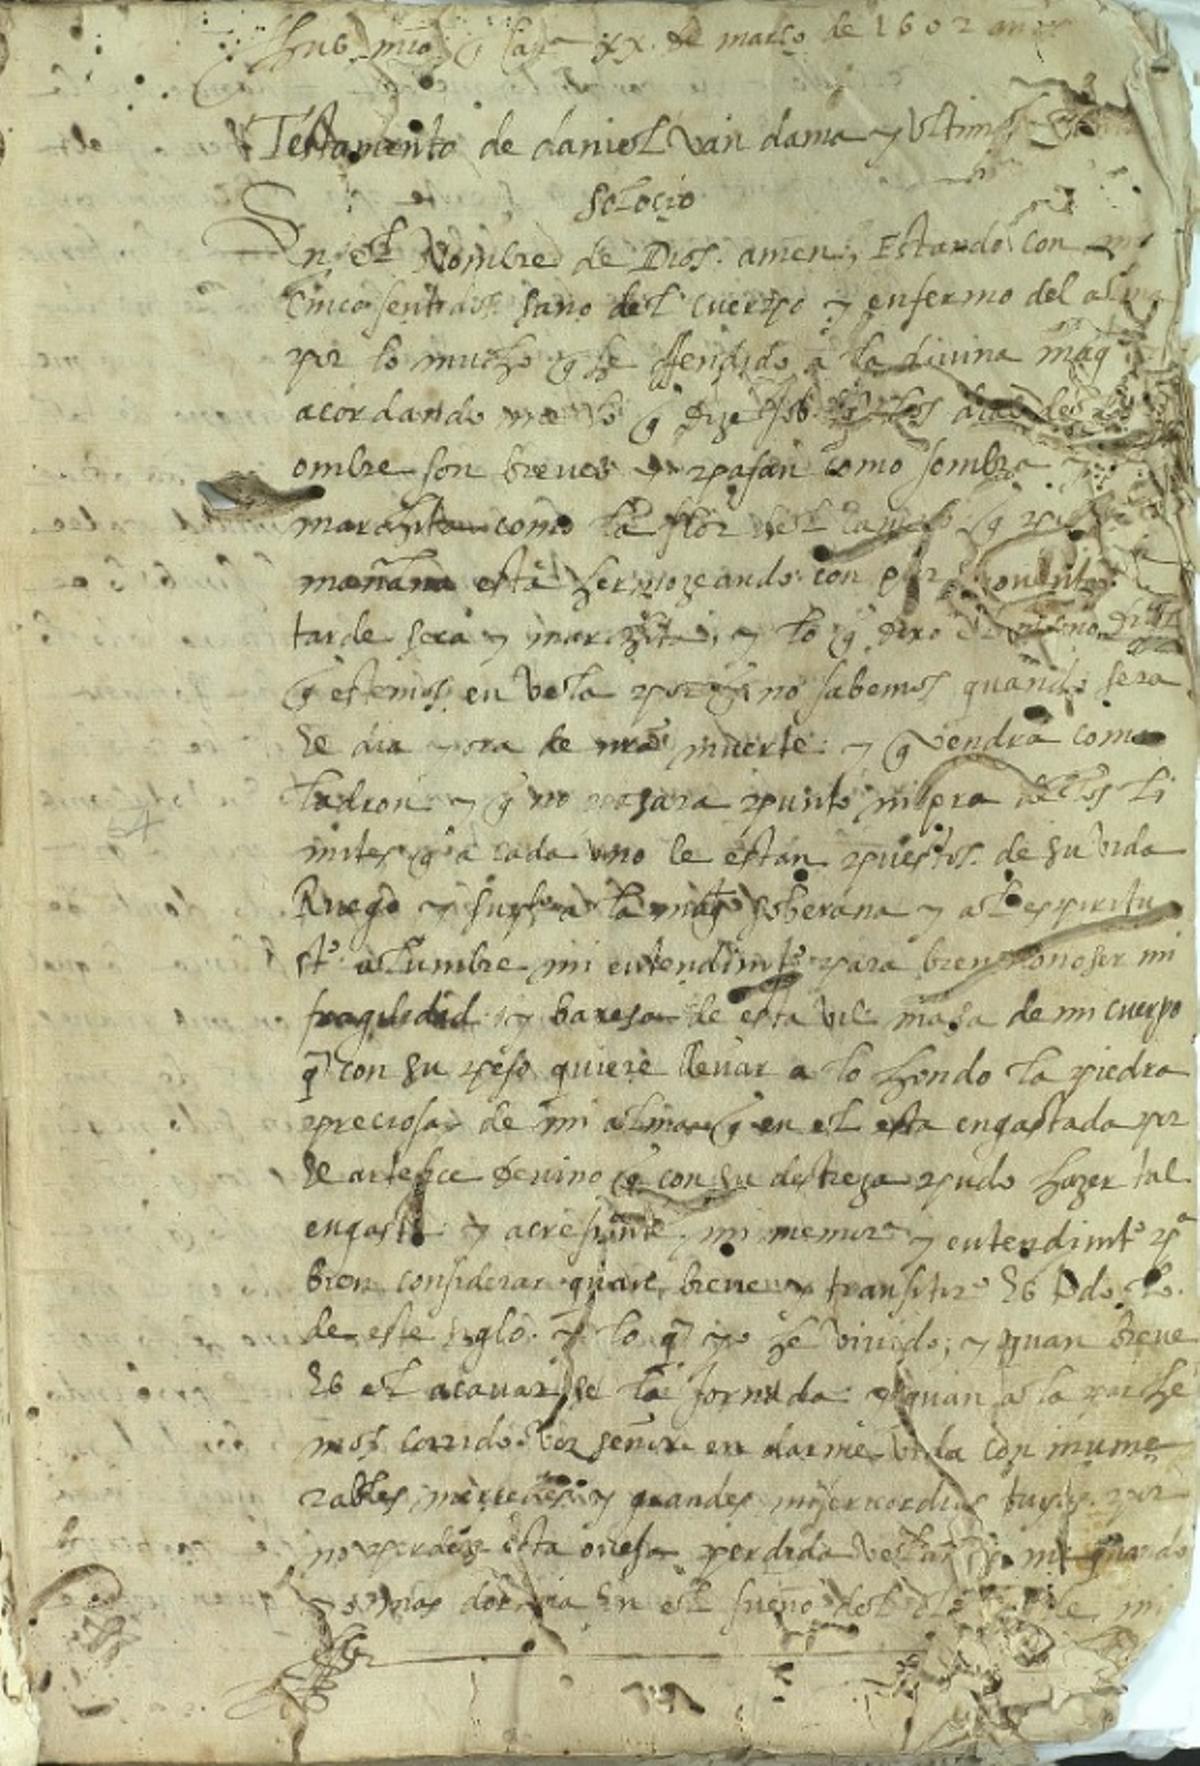 xx de março de 1602 años
Testamento de daniel van dama y Ultima
solocio
En el Nombre de Dios. amen, Estando con mi
cinco sentidos sano del cuerpo y enfermo del alma
por lo mucho q he offendido a la divina mag
acordando me lo q dize Job q los dias del
ombre son breves y pasan como sombra y
marchita como la flor del campo q
mañana està hermozeando con
tarde seca y marchita, y lo q dixo Dios
q estemos en vela porq no sabemos quando sera
el dia y ora de nra muerte y q vendrà como
ladron y q no pasara punto ni ora de los li
mites q a cada uno le estàn puestos de su vida
Ruego y supco a la magd soberana y al esppiritu
sto alumbre mi entendimto para bien conoser mi
fragilidad y baxesa de esta vil masa de mi cuerpo
q con su peso quiere llevar a lo hondo la piedra
preciosa de mi alma q en el esta engastada por
el artefice devino q con su destreza pudo hazer tal
engaste y acresiente mi memoria y entendimto pa
bien considerar quan breve y transitoro es todo lo
de este siglo. y lo q yo he vivido; y quan breve
es el acauarse la jornada y quan a la par he
mos corrido vos señor en darme vida con inume
rables mercedes y grandes misericordias tuyas por
no perder esta oueja perdida me quando
mas dormia en el sueño del de mi